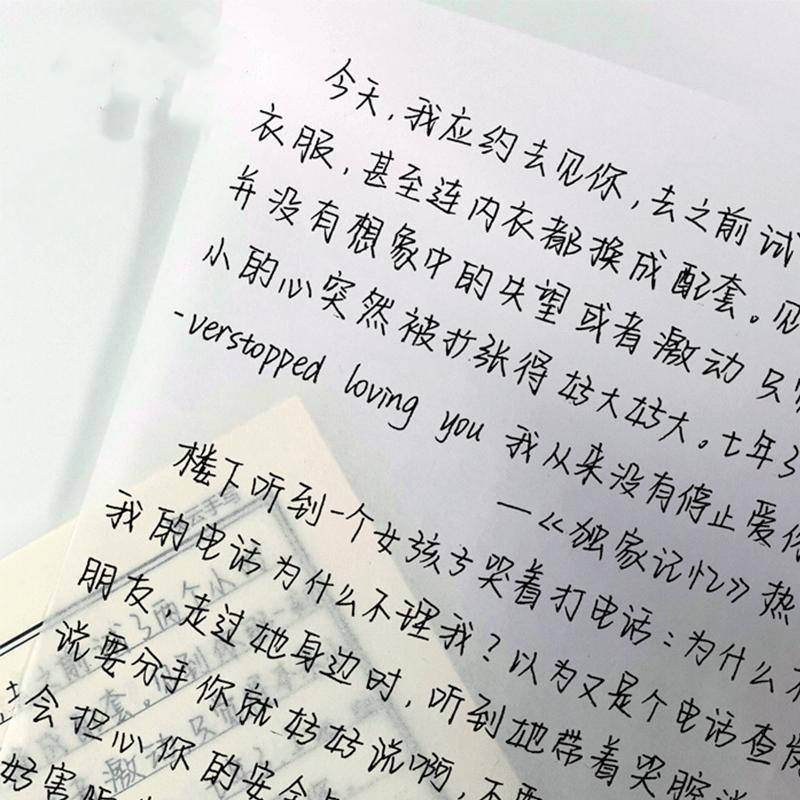 今天,我应约去见你,去之前试
衣服,甚至连内衣都换成配套。见
并没有想象中的失望或者激动只
小的心突然被扩张得好大好大。七年了
-verstopped loving you 我从来没有停止爱你
—《独家记忆》热
楼下听到一个女孩子哭着打电话:为什么不
我的电话为什么不理我?以为又是个电话查
朋友,走过她身边时,听到她带着哭腔
说要分手你就好好说啊,不要
会担心你的安全
好害怕